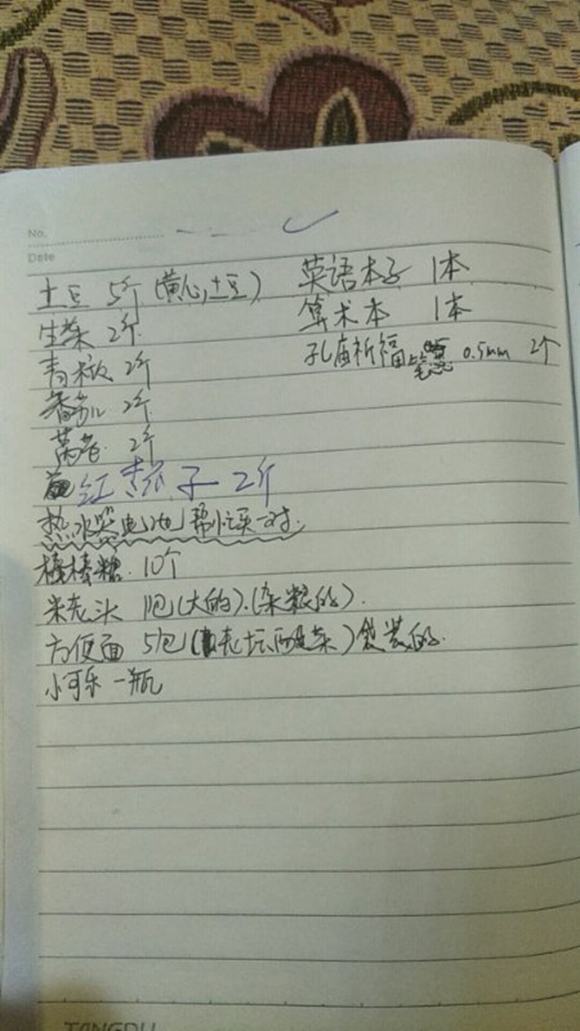 No.
Date
土豆 5斤 (黄心土豆)
生菜 2斤
青椒 2斤
香菜 2斤
茼蒿 2斤
红 子 2斤
热水器电池帮忙买一对.
棒棒糖. 10个
米老头 1包(大的).(杂粮的).
方便面 5包(老坛酸菜)袋装的.
小可乐 一瓶
英语本子 1本
算术本 1本
孔庙祈福 0.5mm 2个